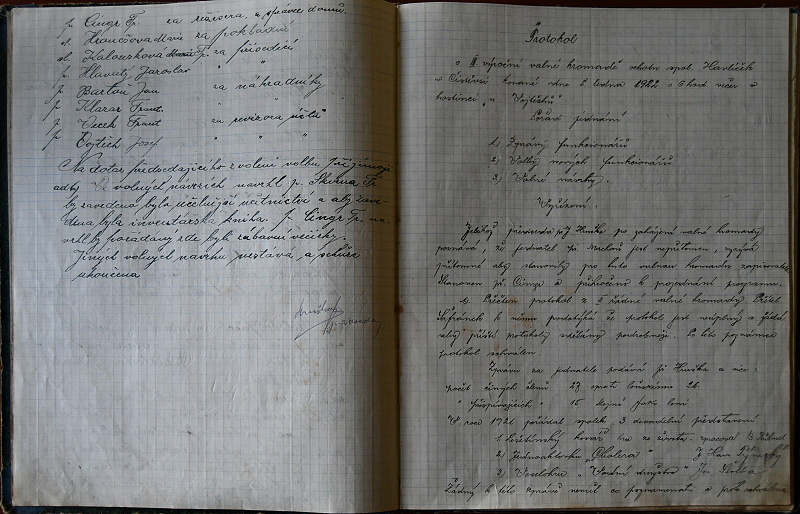 p. Cingr Fr. za režisera, a správce domů.
sl. Hrančšova Marie za pokladní
sl. Kalousková Marie Fr. za přísedící
p. Hlavatý Jaroslav " "
p. Bartoň Jan za náhradníky
p. Klazar Frant. " "
p. Cecek Frant za revisora účtů
p. Vojtěch Josef " " "
Na dotaz předsedajícího zvolení volbu přijímají
Ve volných navrzích navrhl p. Fr.
by zavedena byla účelnější účetnictví a aby zave-
dena byla inventárská kniha. p. Cingr Fr. na-
vrhl by pořádány zde byli zábavní večírky.
Jiných volných návrhu nestává, a schůze
ukončena.
Protokol
o II. výpoční valné hromadě ochotn. spol. Havlíček
v konané dne 5 ledna 1922 o 8 hod večer v
hostinci „u Vojtěchů"
Pořad jednání
1) Zprávy funkcionářů
2) Volby nových funkcionářů
3) Volné návrhy.
Vyřízení.
předseda př. Hruška po zahájení valné hromady
poznává, že jednatel př. Machoň jest nepřítomen, vyzývá
přítomné aby stanovily pro tuto valnou hromadu zapisovatele
Stanoven př. Cingr a přikročeno k projednání programu.
1. Přečten protokol z I řádné valné hromady. Přítel
Šafránek k němu podotýká že protokol jest neúplný a žádá
aby příště protokoly vzdělány podrobněji. Po této poznámce
protokol schválen.
Zprávu za jednatele podává př. Hruška a sice:
počet činých členů 27 oproti loňskému 26.
" přispívajících " 15 stejně jako loni
V roce 1921 pořádal spolek 3 divadelní představení
1. kovář hra ze života.
2) Jednoaktovku „Cholera"
3) Veselohru „Vodní družstvo"
Žádný k této zprávě neměl co poznamenati a proto schválena